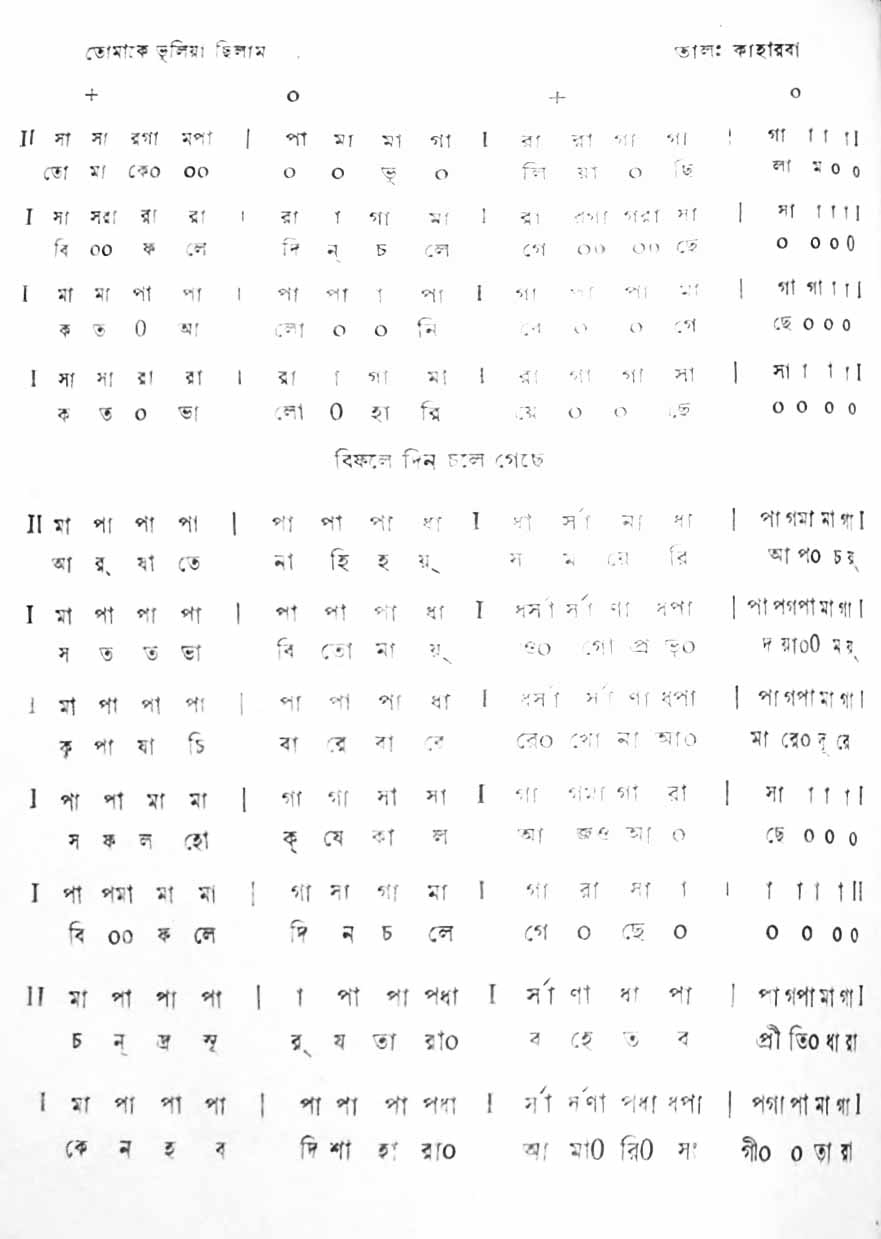 তোমাকে ভুলিয়া ছিলাম তালঃ কাহারবা
+ ০ + ০
II সা সা রগা মপা | পা মা মা গা I রা রা গা গা | গা া া া I
তো মা কে০ ০০ ০ ০ ভু ০ লি য়া ০ ছি লা ম ০ ০
I সা সরা রা রা | রা া গা মা I রা রগা গরা সা | সা া া া I
বি ০০ ফ লে দি ন্ চ লে গে ০০ ০০ ছে ০ ০ ০ ০
I মা মা পা পা | পা পা া পা I গা পা পা মা | গা গা া া I
ক ত ০ আ লো ০ ০ নি বে ০ ০ গে ছে ০ ০ ০
I সা সা রা রা | রা া গা মা I রা গা গা সা | সা া া া I
ক ত ০ ভা লো ০ হা রি য়ে ০ ০ ছে ০ ০ ০ ০
বিফলে দিন চলে গেছে
II মা পা পা পা | পা পা পা ধা I ধা র্সা না ধা | পা গমা মা গা I
আ র্ যা তে না হি হ য়্ স ম য়ে রি আ প০ চ য়্
I মা পা পা পা | পা পা পা ধা I ধর্সা র্সা ণা ধপা | পা পগপা মা গা I
স ত ত ভা বি তো মা য়্ ও০ গো প্র ভূ০ দ য়া০০ ম য়্
I মা পা পা পা | পা পা পা ধা I ধর্সা র্সা ণা ধপা | পা গপা মা গা I
কৃ পা যা চি বা রে বা রে রে০ খো না আ০ মা রে০ দূ রে
I পা পা মা মা | গা গা সা সা I গা গমা গা রা | সা া া া I
স ফ ল হো ক্ যে কা ল আ জও আ ০ ছে ০ ০ ০
I পা পমা মা মা | গা সা গা মা I গা রা সা া | া া া া II
বি ০০ ফ লে দি ন চ লে গে ০ ছে ০ ০ ০ ০ ০
II মা পা পা পা | া পা পা পধা I র্সা ণা ধা পা | পা গপা মা গা I
চ ন্ দ্র সূ র্ য তা রা০ ব হে ত ব প্রী তি০ ধা রা
I মা পা পা পা | পা পা পা পধা I র্সা র্সণা পধা ধপা | পগা পা মা গা I
কে ন হ ব দি শা হা রা০ আ মা০ রি০ সং গী০ ০ তা রা